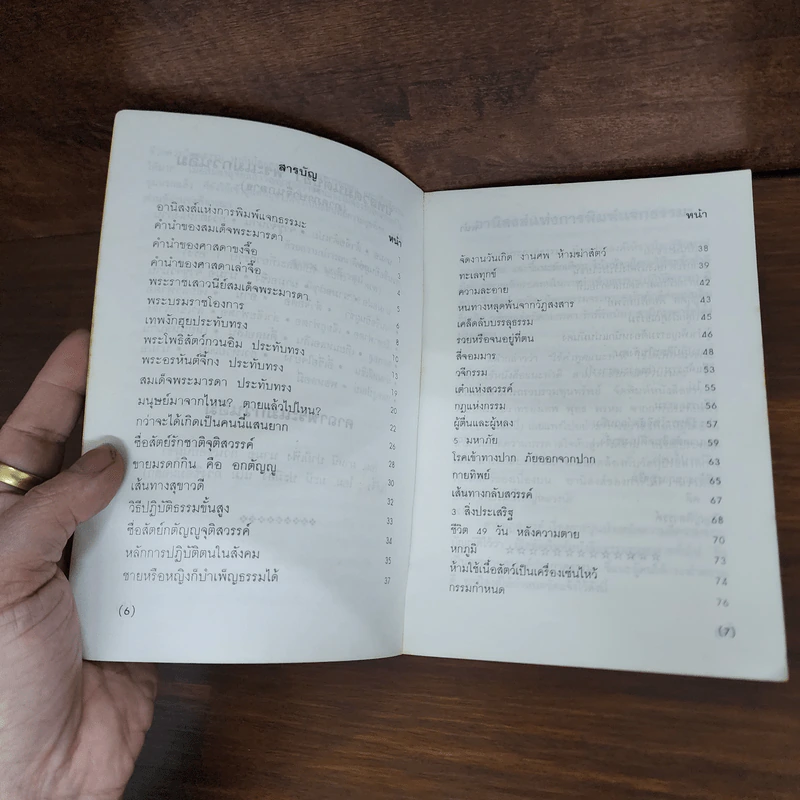 สารบัญ
หน้า
อานิสงส์แห่งการพิมพ์แจกธรรมะ 1
คำนำของสมเด็จพระมารดา
คำนำของศาสดาขงจื้อ 3
คำนำของศาสดาเล่าจื้อ 4
พระราชเสาวนีย์สมเด็จพระมารดา 5
พระบรมราชโองการ 6
เทพงักฮุยประทับทรง 8
พระโพธิสัตว์กวนอิม ประทับทรง 10
พระอรหันต์จี้กง ประทับทรง
สมเด็จพระมารดา ประทับทรง
มนุษย์มาจากไหน? ตายแล้วไปไหน? 20
กว่าจะได้เกิดเป็นคนนี้แสนยาก 22
ซื่อสัตย์รักชาติจุติสวรรค์ 26
ขายมรดกกิน คือ อกตัญญู 28
เส้นทางสุขาวดี 30
วิธีปฏิบัติธรรมขั้นสูง 32
ซื่อสัตย์กตัญญูจุติสวรรค์ 33
หลักการปฏิบัติตนในสังคม 34
ชายหรือหญิงก็บำเพ็ญธรรมได้ 35
37
(6)
หน้า
จัดงานวันเกิด งานศพ ห้ามฆ่าสัตว์ 38
ทะเลทุกข์ 39
ความละอาย 42
หนทางหลุดพ้นจากวัฏสงสาร 43
เคล็ดลับบรรลุธรรม 45
รวยหรือจนอยู่ที่ตน 46
สี่จอมมาร 48
วจีกรรม 53
เต๋าแห่งสวรรค์ 55
กฎแห่งกรรม 56
ผู้ตื่นและผู้หลง 57
5 มหาภัย 59
โรคเข้าทางปาก ภัยออกจากปาก 63
กายทิพย์ 65
เส้นทางกลับสวรรค์ 67
3 สิ่งประเสริฐ 68
ชีวิต 49 วัน หลังความตาย 70
หกภูมิ 73
ห้ามใช้เนื้อสัตว์เป็นเครื่องเซ่นไหว้ 74
กรรมกำหนด 76
(7)